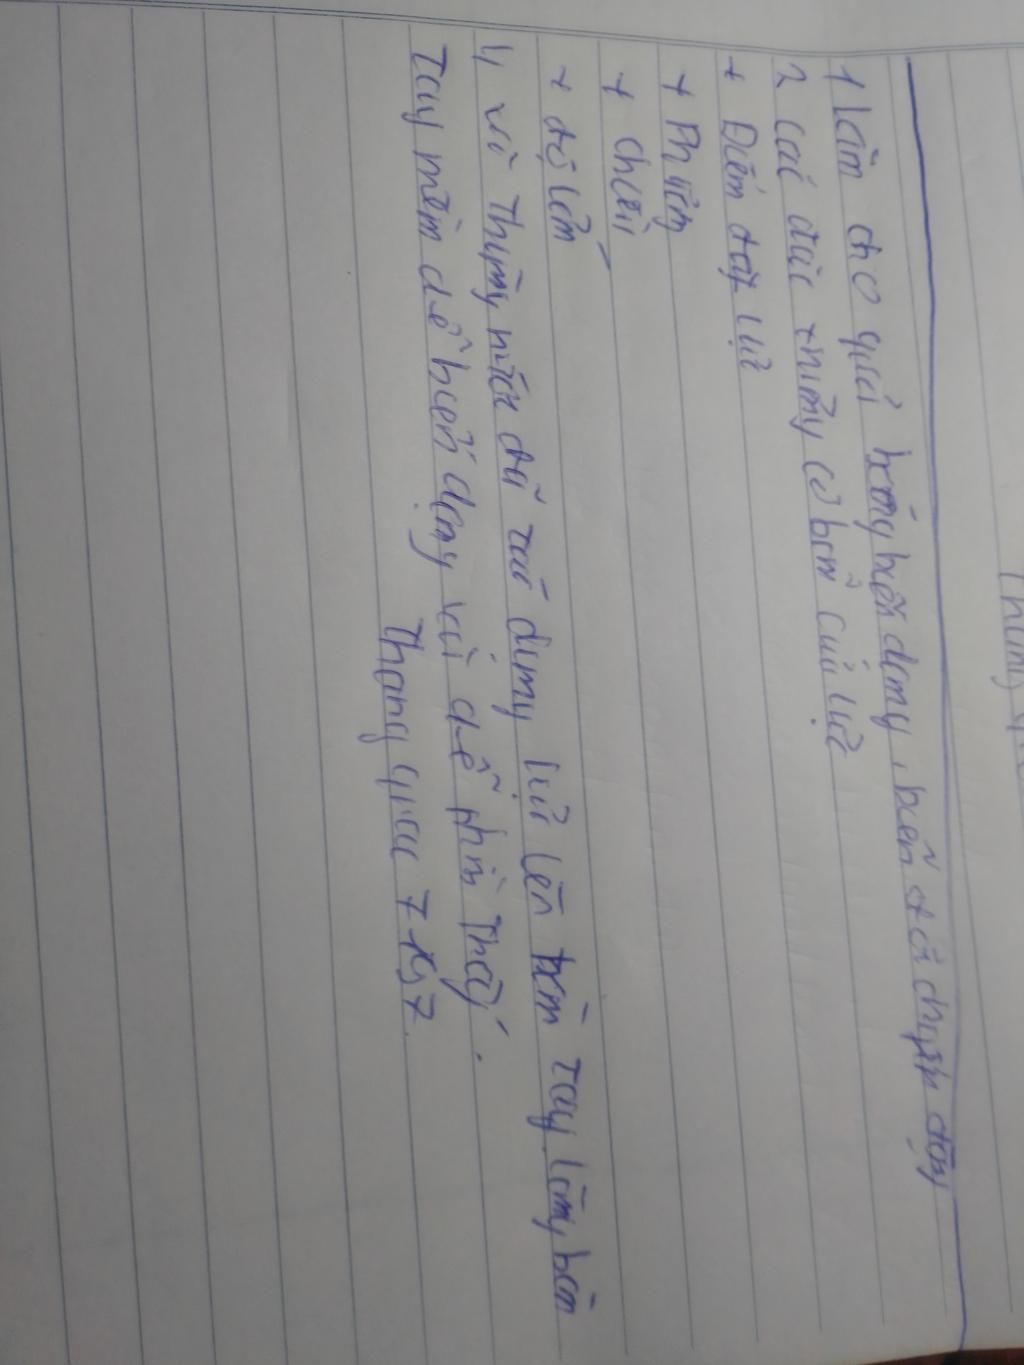 1 làm cho quả bóng biến dạng, biến đổi chuyển động
2 Các đặc trưng cơ bản của lực
+ Điểm đặt lực
+ Phương
+ Chiều
+ độ lớn
4, vì thùng nước đã tác dụng lực lên bàn tay làm bàn
Tay mềm dễ biến dạng và dễ